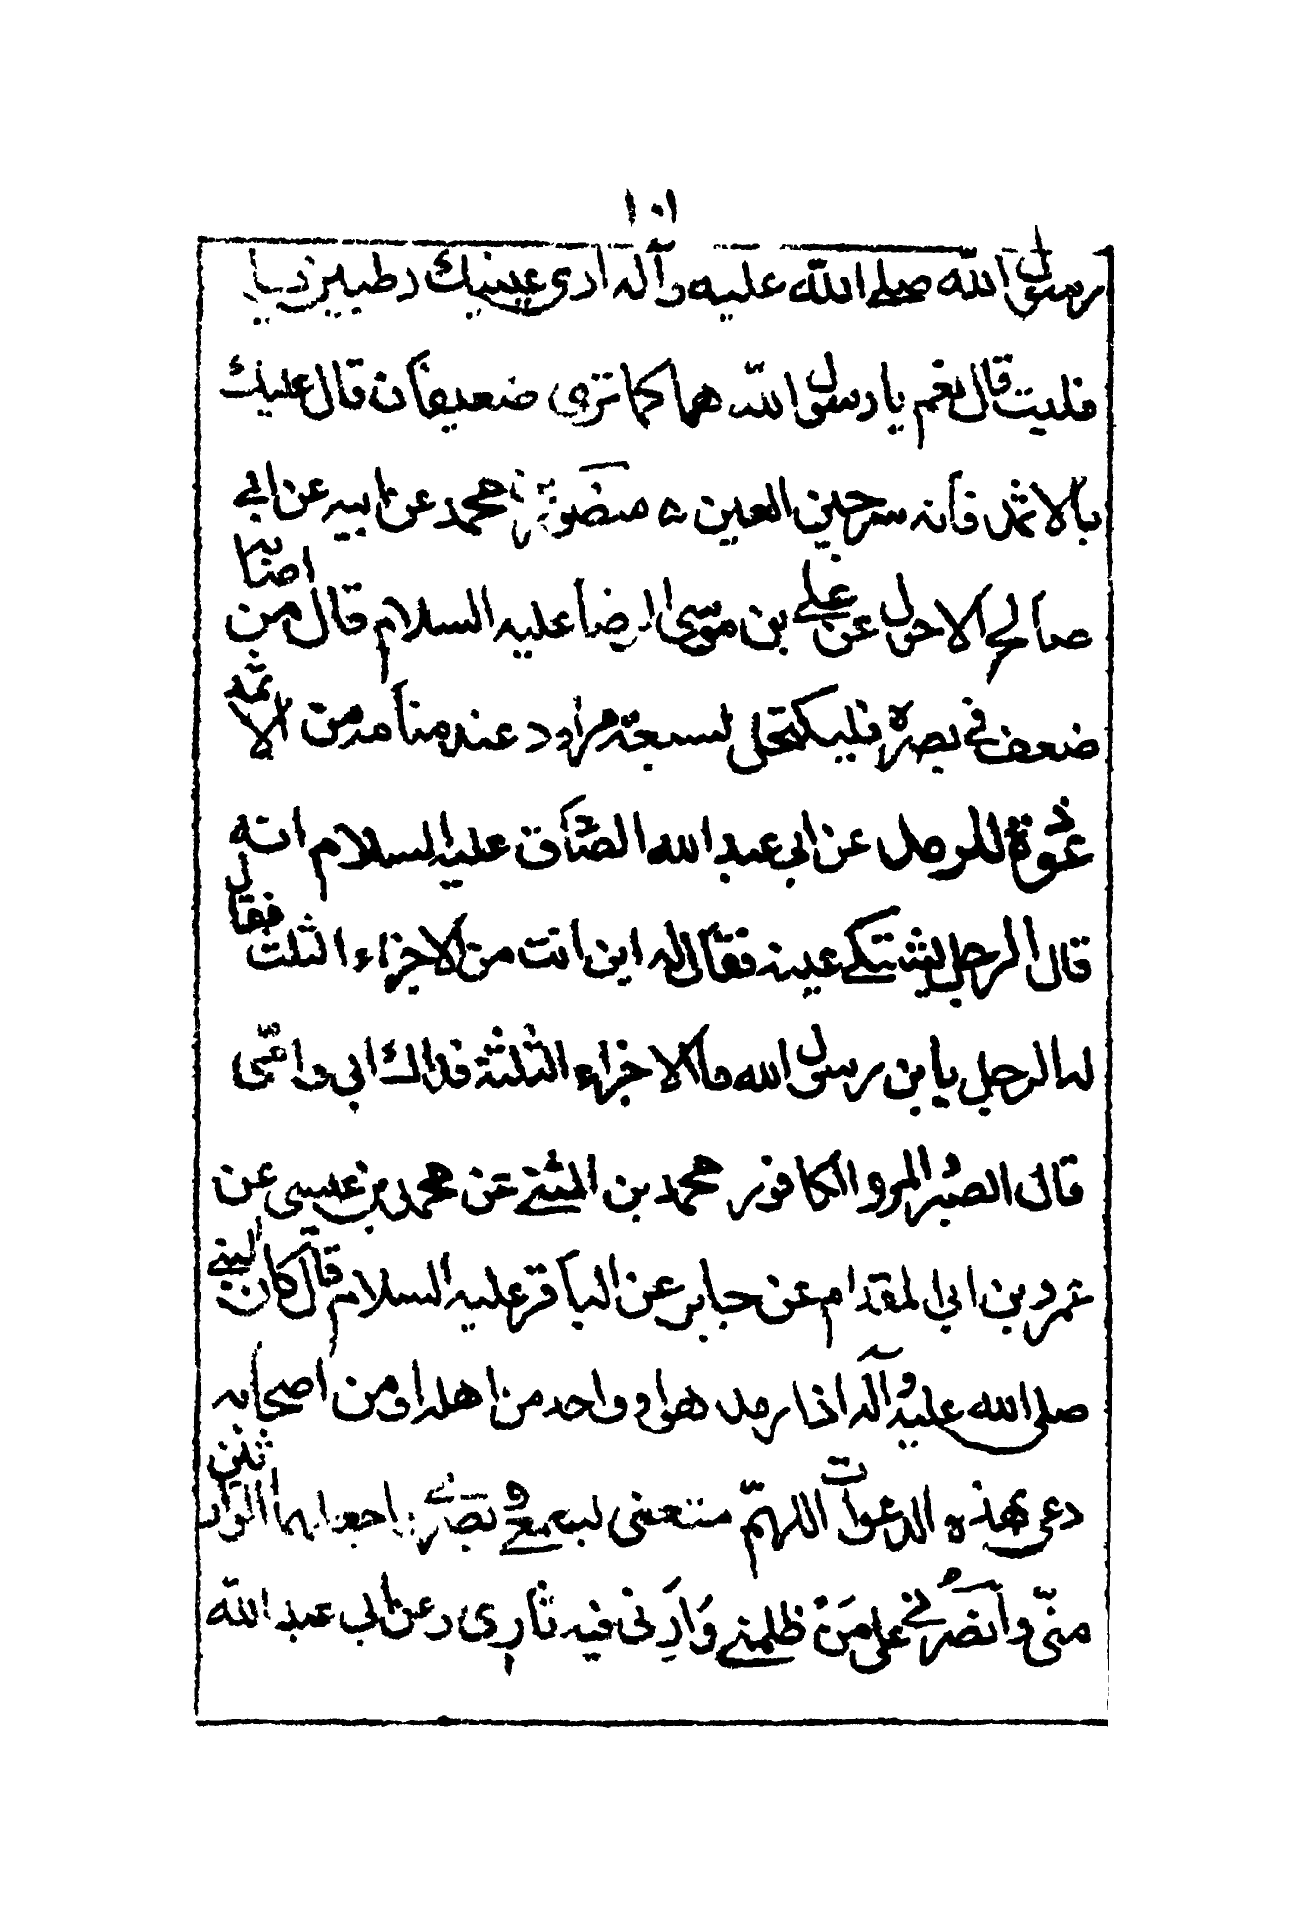 ١٠١
رسول الله صلى الله عليه وآله ارى عينيك رطبتين زيبا
فليت قال نعم يا رسول الله هما كما ترى ضعيفان قال عليك
بالاثمد فانه سرجين العين منصور محمد عن ابيه عن ابي
صالح الاحول عن علي بن موسى الرضا عليه السلام قال من اصابه
ضعف في بصره فليكتحل لسبعة مراود عند منامه من الاثمد
عوذة للرمد عن ابي عبد الله الصادق عليه السلام انه
قال الرجل يشتكي عينه فقال له اين انت من الاجزاء الثلث فقال
له الرجل يا بن رسول الله ما الاجزاء الثلثة فداك ابي و امي
قال الصبر المر و الكافور محمد بن المثنى عن محمد بن عيسى عن
عمرو بن ابي المقدام عن جابر عن الباقر عليه السلام قال كان النبي
صلى الله عليه وآله اذا رمد هو او واحد من اهله او من اصحابه
دعى بهذه الدعوات اللهم متعنى بسمعي و بصري و اجعلهما الوارثين
منى و انصرني على من ظلمني و ارنى فيه ثارى و عن ابي عبد الله